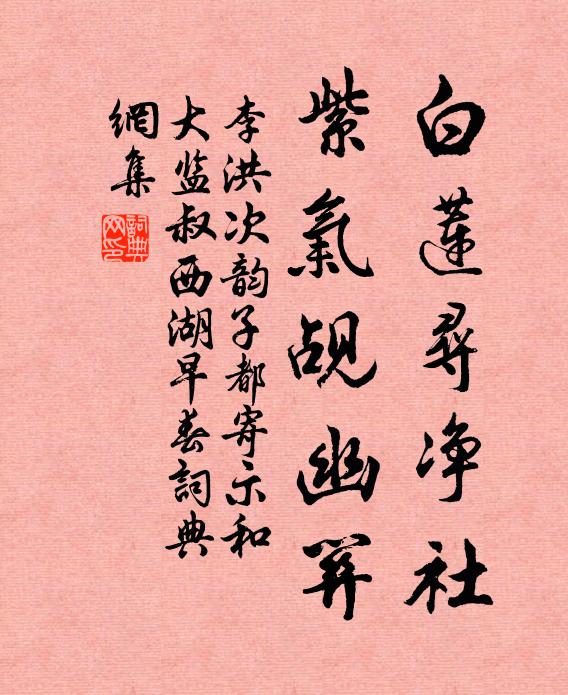 白蓮尋净社
紫氣覘幽關
李洪次韵子都寄示和
大监叔西湖早春詞典
網集
詞典
网印